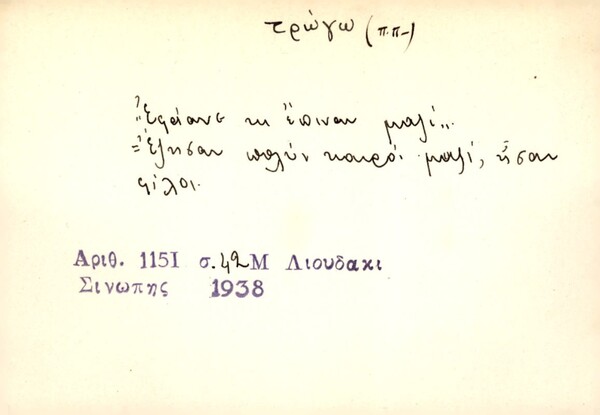 τρώγω (π.π-)
"Ἐφάανε κι ἔπιναν μαζί"
=Ἔζησαν πολύν καιρό μαζί, ἦσαν
φίλοι.
Αριθ. 1151 σ. 42 Μ Λιουδακι
Σινωπης 1938